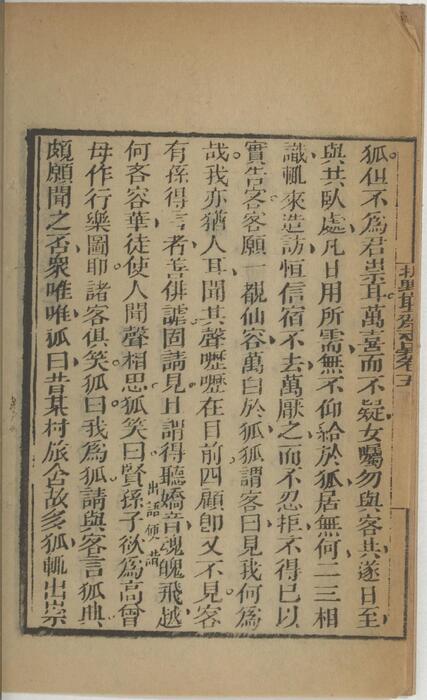 批點聊齋志異卷五
狐但不為君祟耳萬喜而不疑女囑勿與客共遂日至
與共臥處凡日用所需無不仰給於狐居無何二三相
識輒來造訪恒信宿不去萬厭之而不忍拒不得已以
實告客客願一覩仙容萬白於狐狐謂客曰見我何為
哉我亦猶人耳聞其聲嚦嚦在目前四顧卽又不見客
有孫得言者善俳謔固請見且謂得聽嬌音魂魄飛越
出語便諧
何吝容華徒使人聞聲相思狐笑曰賢孫子欲為高曾
母作行樂圖耶諸客俱笑狐曰我為狐請與客言狐典
頗願聞之否衆唯唯狐曰昔某村旅舍故多狐輒出祟